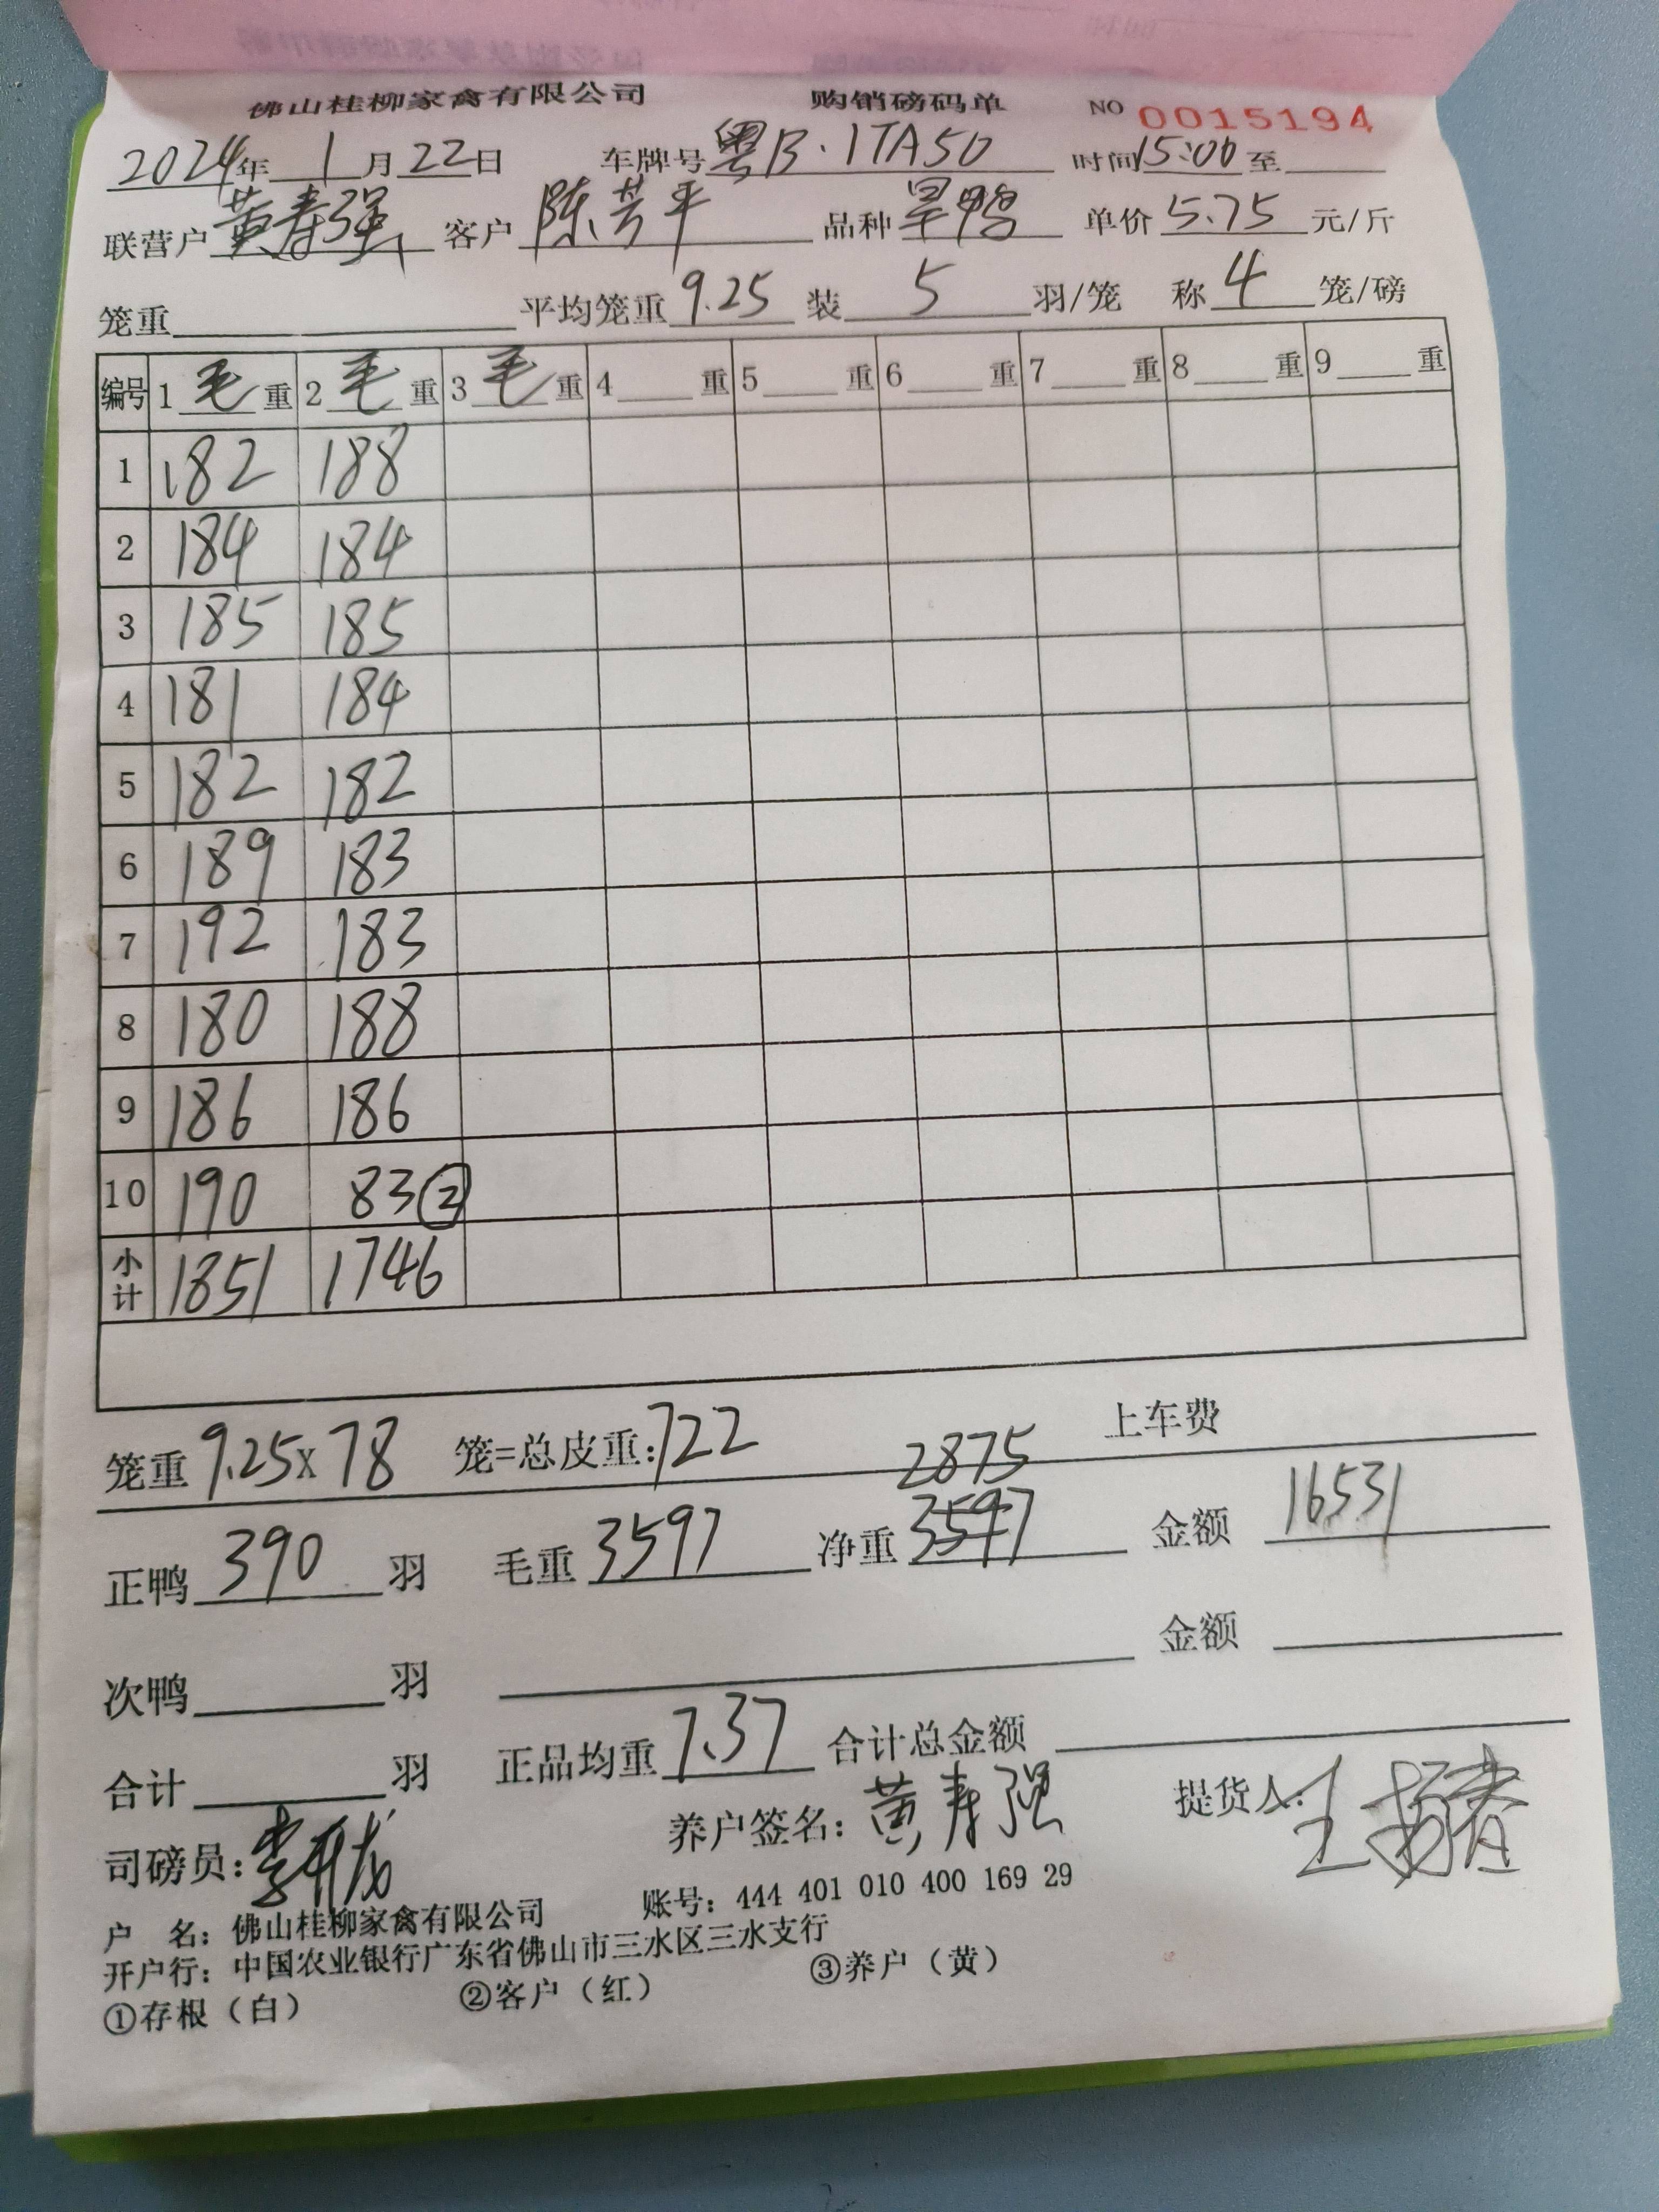 佛山桂柳家禽有限公司 购销磅码单 NO 0015194
2024年 1月22日 车牌号 粤B·1TA50 时间15:00至
联营户 黄寿强 客户 陈芳平 品种 旱鸭 单价 5.75 元/斤
笼重 平均笼重 9.25 装 5 羽/笼 称 4 笼/磅
编号 1 毛 重 2 毛 重 3 毛 重 4 重 5 重 6 重 7 重 8 重 9 重
1 182 188
2 184 184
3 185 185
4 181 184
5 182 182
6 189 183
7 192 183
8 180 188
9 186 186
10 190 83②
小计 1851 1746
笼重 9.25x 78 笼=总皮重:722 上车费
2875
正鸭 390 羽 毛重 3597 净重 3597 金额 16531
次鸭 羽 金额
合计 羽 正品均重 7.37 合计总金额
司磅员: 养户签名: 黄寿强 提货人: 王
户 名: 佛山桂柳家禽有限公司 账号: 444 401 010 400 169 29
开户行: 中国农业银行广东省佛山市三水区三水支行
①存根(白) ②客户(红) ③养户(黄)